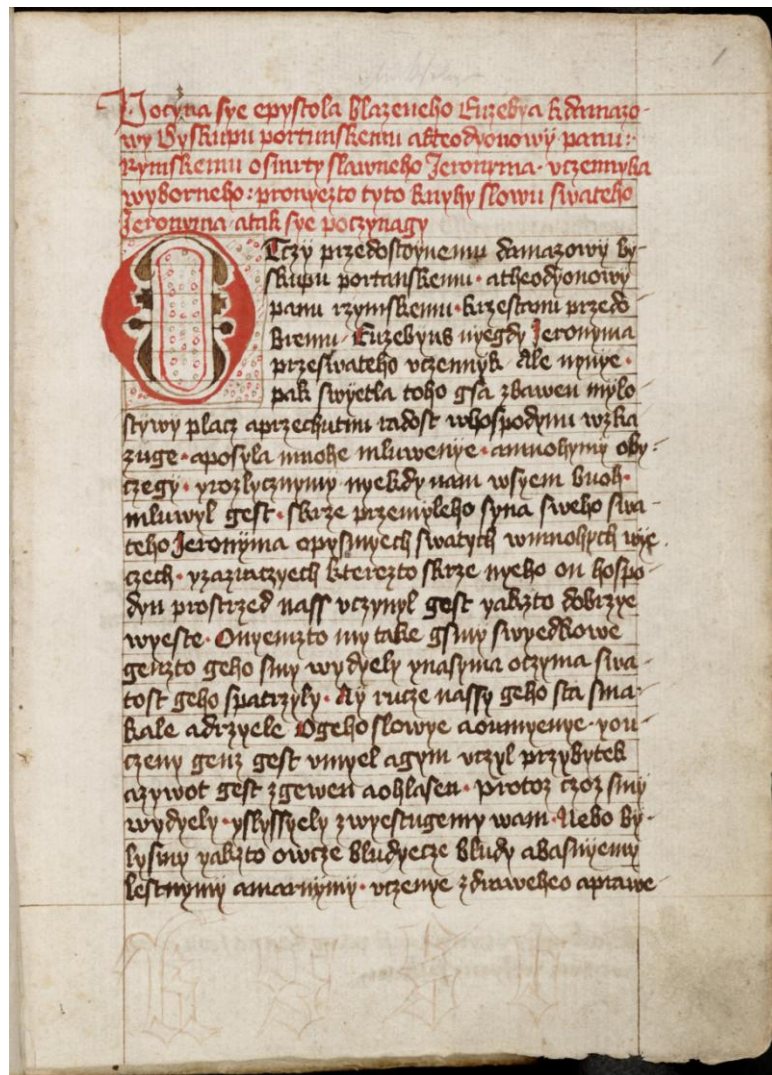 Poczyna sye epystola blazeneho Euzebya kdamazo-
wy Byskupu portunskemu aktheodyonowy panu:
Rymskemu osmrty slawneho Jeronyma· vczennyka
wyborneho: pronyezto tyto knyhy slowu swateho
Jeronyma atak sye poczynagy
OTczy przedostoynemu damazowy by-
skupu portunskemu· atheodyonowy
panu rzymskemu· krzestoni przedo-
Bremu· Euzebyus nyegdy Jeronyma
przeswateho vczennyk· Ale nynye·
pak swyetla toho gsa zbawen mylo-
stywy placz aprzechutnu radost whospodynu wzka
zuge· aposyla mnohe mluwenye· amnohymy oby-
czegy· yrozlycznymy nyekdy nam wsyem buoh·
mluwyl gest· skrze przemyleho syna sweho swa-
teho Jeronyma opysmyech swatych wmnohych wye
czech· yzazraczyech kterezto skrze nyeho on hospo-
dyn prostrzed nass vczynyl gest yakzto dobrzye
wyeste· Onyemzto my take gsmy swyedkowe
genzto geho smy wydyely ynasyma oczyma swa-
tost geho spatrzyly· Ay rucze nassy geho sta sma-
kale adrzyele Ogeho slowye aoumyenye· you-
czeny genz gest vmyel agym vczyl przybytek
azywot gest zgewen aohlasen· protoz czoz smy
wydyely· yslyssyely zwyestugemy wam· Nebo by-
lysmy yakzto owcze bludyecze bludy abasnyemy
lestnymy amarnymy· vczenye zdraweheo aprawe-